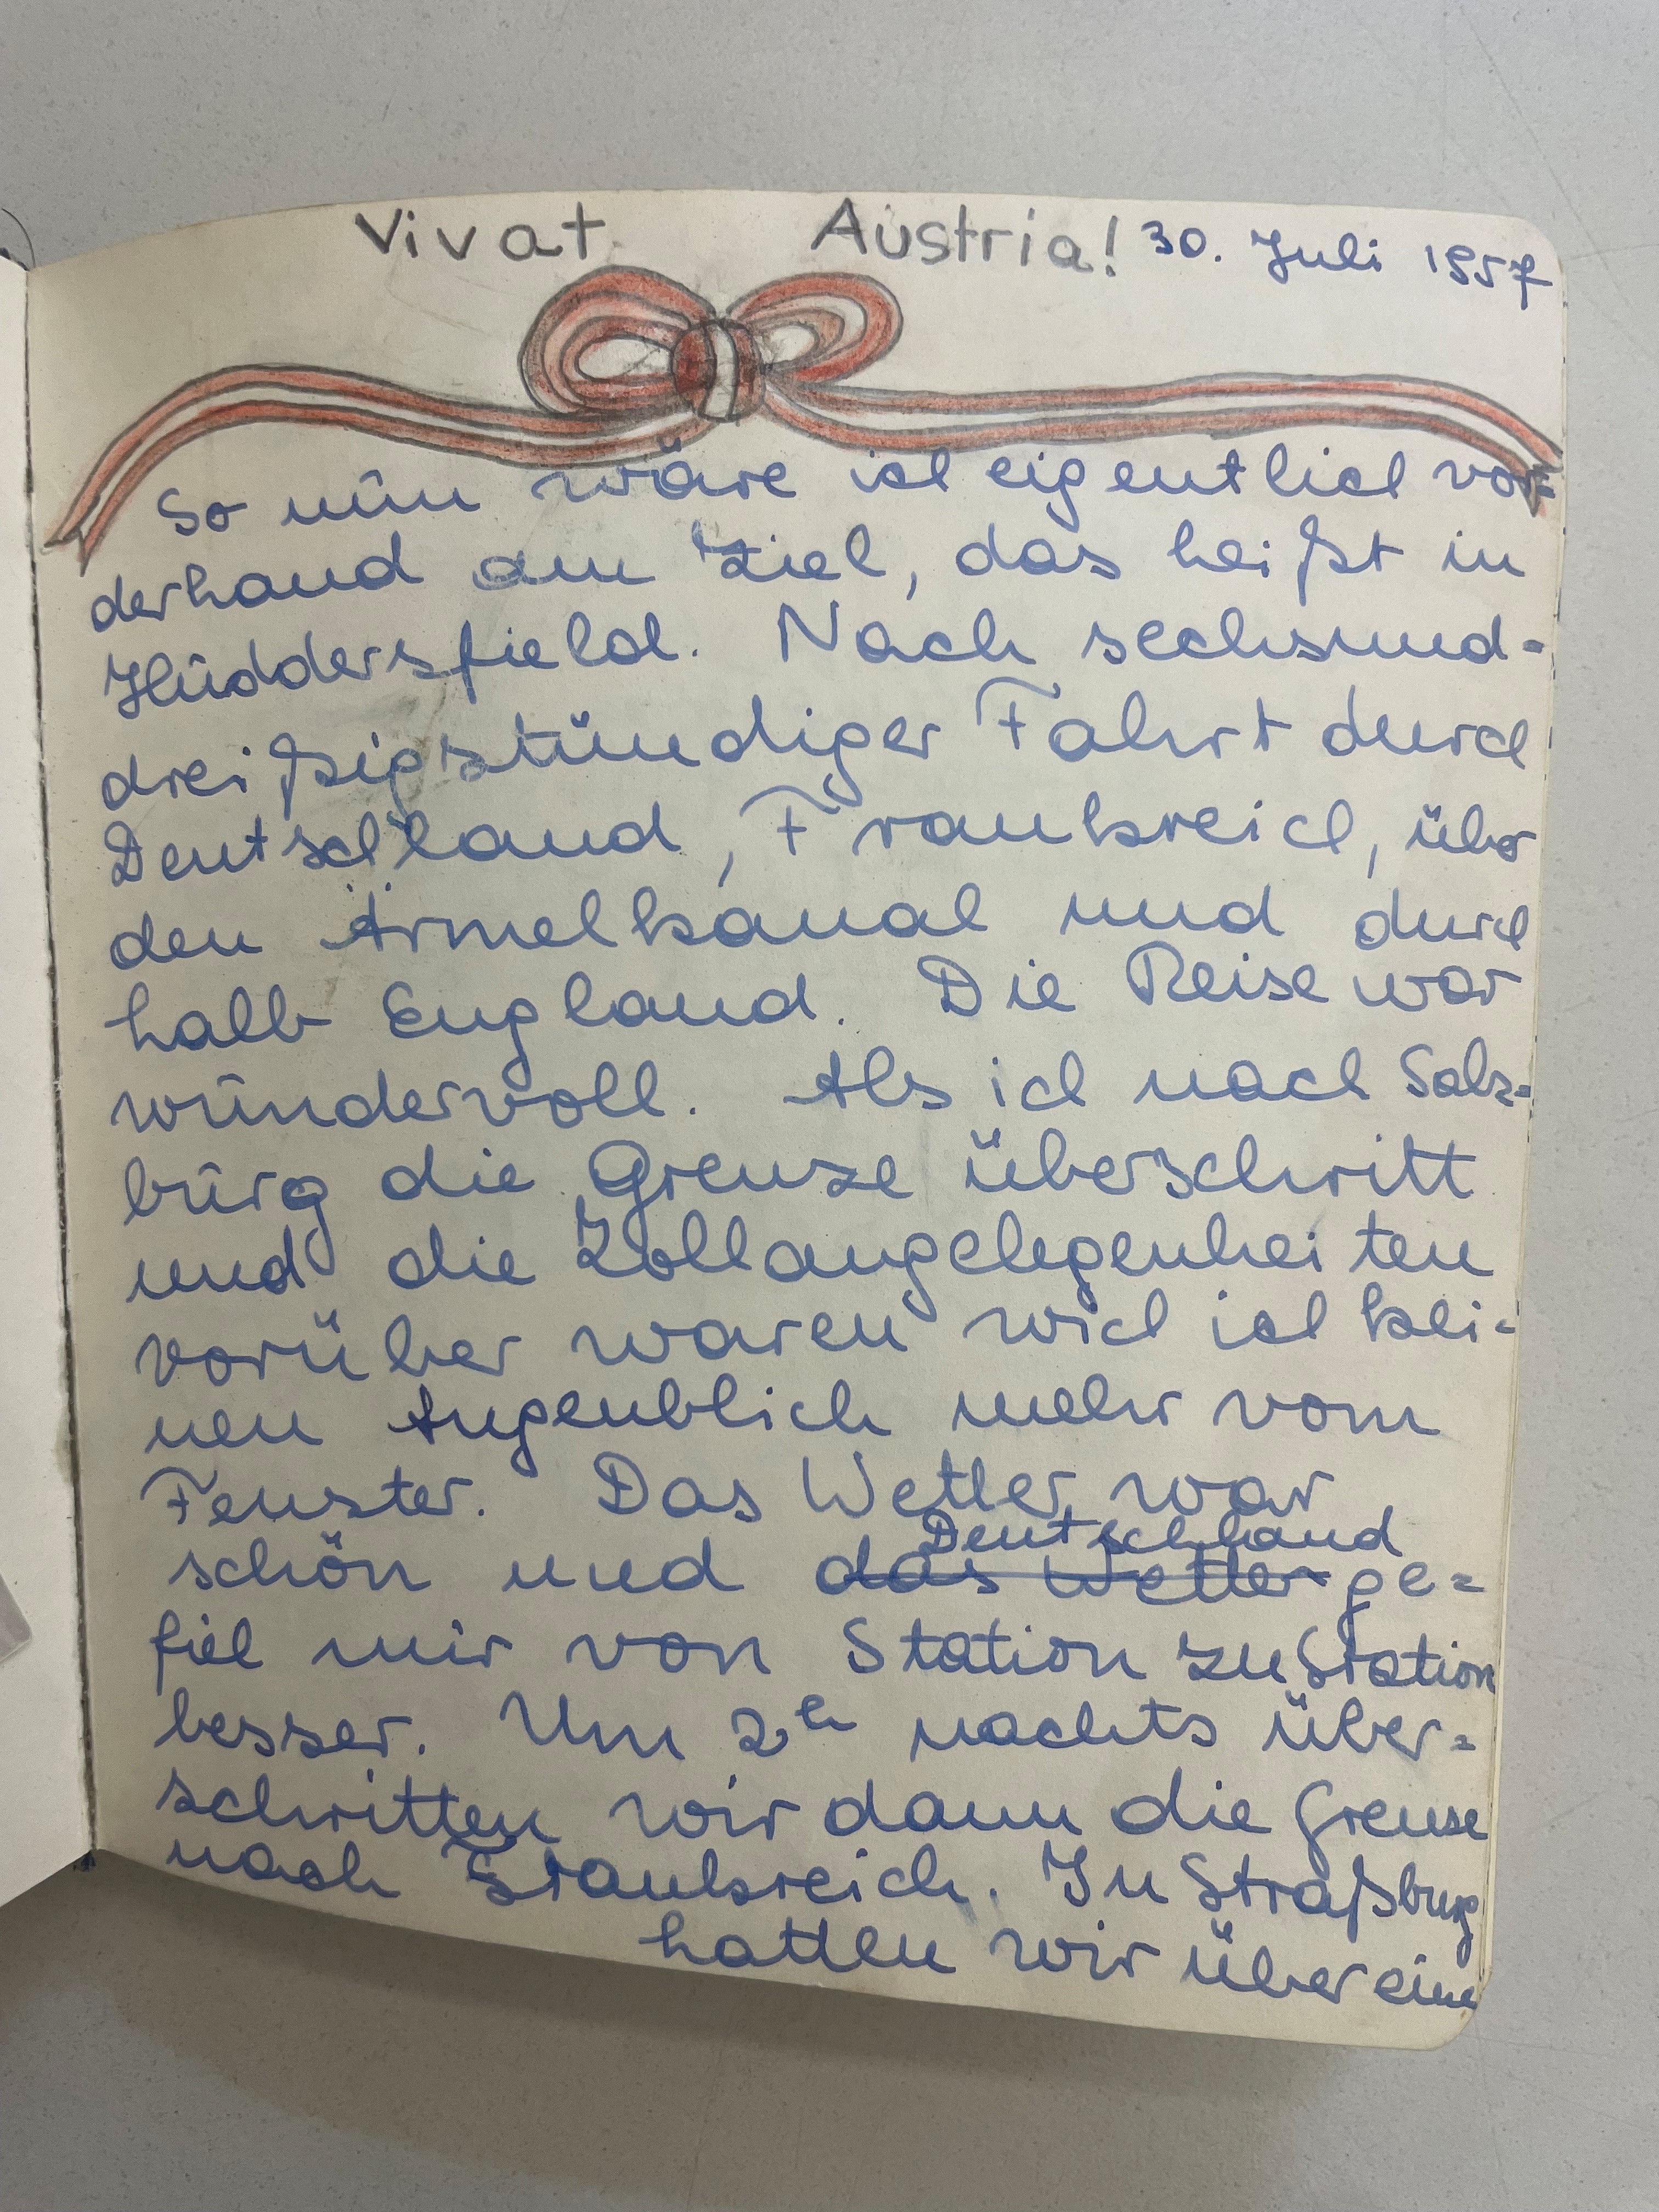 Vivat Austria! 30. Juli 1957
So nun wäre ich eigentlich vor=
derhand am Ziel, das heißt in
Huddersfield. Nach sechsund=
dreißigstündiger Fahrt durch
Deutschland, Frankreich, über
den Ärmelkanal und durch
halb England. Die Reise war
wundervoll. Als ich nach Salz=
burg die Grenze überschritt
und die Zollangelegenheiten
vorüber waren wich ich kei=
nen Augenblich mehr vom
Fenster. Das Wetter war
Deutschland
schön und das Wetter ge=
fiel mir von Station zu Station
besser. Um 2h nachts über=
schritten wir dann die Grenze
nach Frankreich. In Straßburg
hatten wir über eine